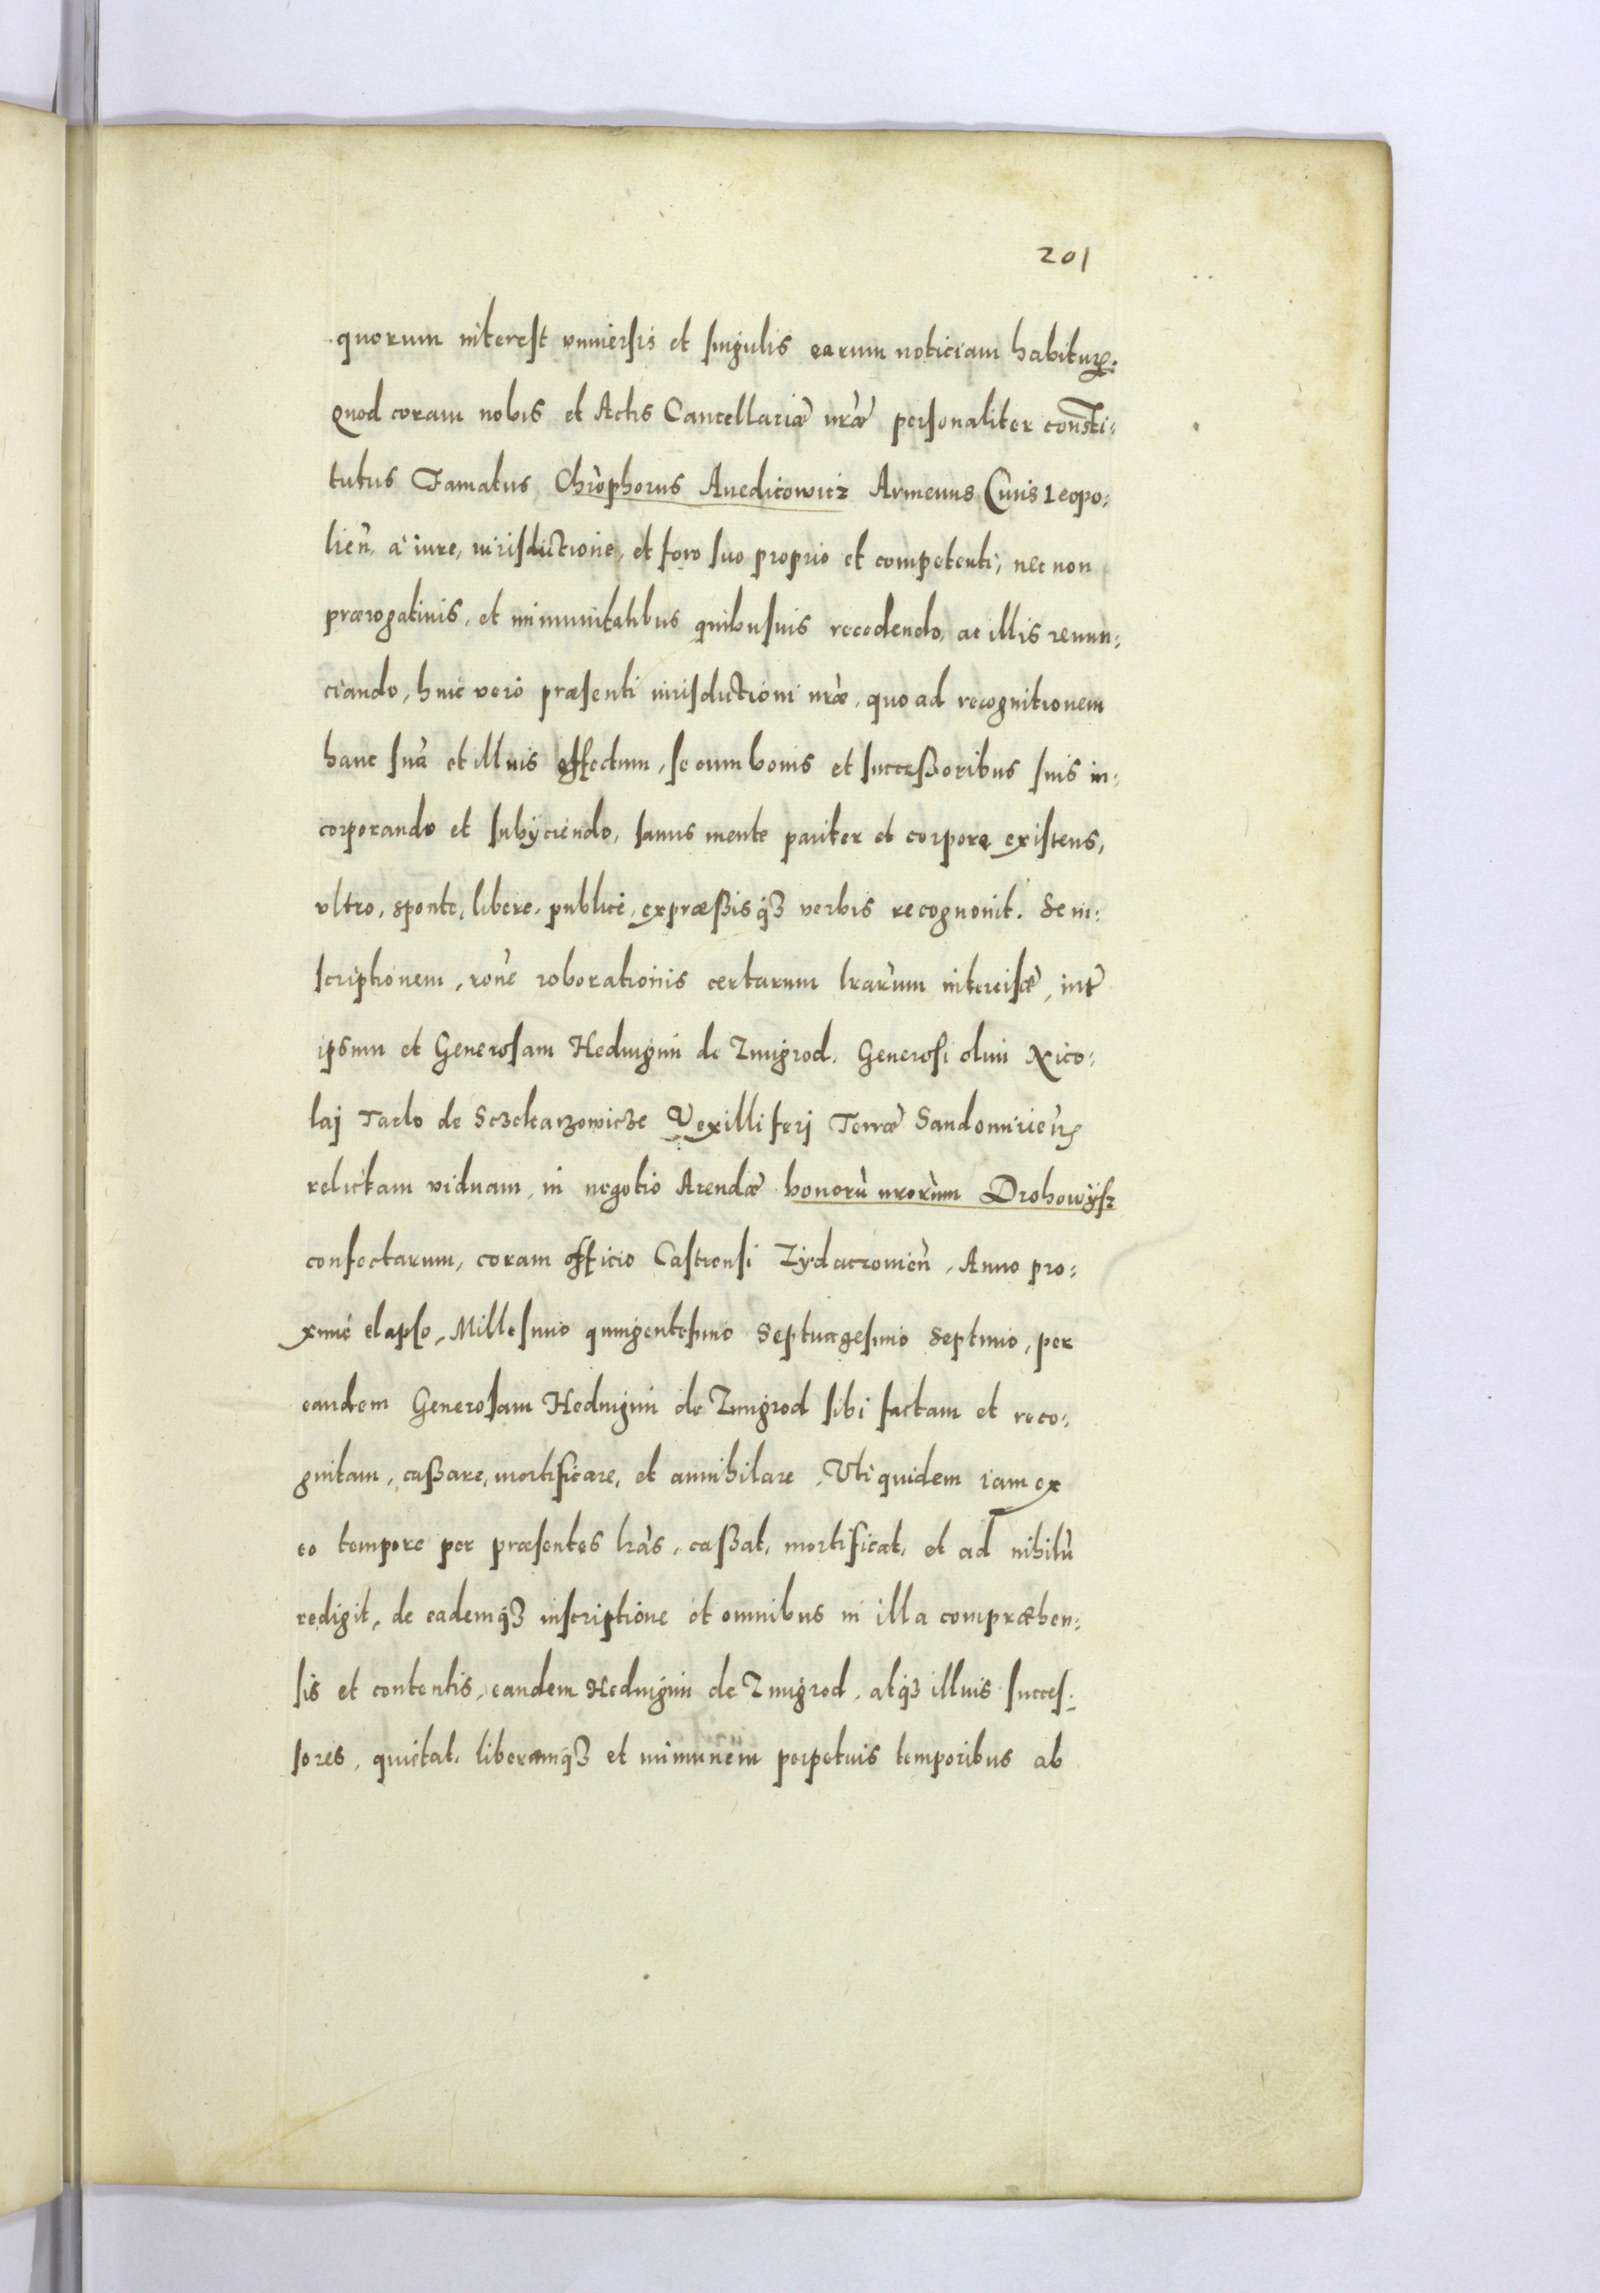 201
quorum interest vniuersis et singulis earum noticiam habitur.
Quod coram nobis et Actis Cancellariæ nr̃æ personaliter consti:
tutus Famatus Chr̃ophorus Auedicowicz Armenus Ciuis Leopo:
lien̄. à iure, iurisdictione, et foro suo proprio et competenti, nec non
prærogatiuis, et immunitatibus quibusuis recedendo, ac illis renun:
ciando, huic verò præsenti iurisdictioni nr̃æ, quo ad recognitionem
hanc suã et illius effectum, se cum bonis et successoribus suis in:
corporando et subijciendo, sanus mente pariter et corpore existens,
vltro, sponte, libere, publicè, expræssisq3 verbis recognouit. Se in:
scriptionem, rõne roborationis certarum lr̃arum intercisæ, int̃
ipsum et Generosam Heduigim de Zmigrod, Generosi olim Nico:
laj Tarlo de Sczekarzowicze Vexilliferj Terræ Sandomirien̄
relictam viduam, in negotio Arendæ bonorũ nr̃orum Drohowÿsz
confectarum, coram officio Castrensi Zÿdaczouien̄, Anno pro:
ximè elapso, Millesimo quingentesimo Septuagesimo Septimo, per
eandem Generosam Heduigim de Zmigrod sibi factam et reco:
gnitam, cassare, mortificare, et annihilare, Vti quidem iam ex
eo tempore per præsentes lr̃as, cassat, mortificat, et ad nihilũ
redigit, de eademq3 inscriptione et omnibus in illa compræhen:
sis et contentis, eandem Heduigim de Zmigrod, atq3 illius succes:
sores, quietat, liberamq3 et immunem perpetuis temporibus ab